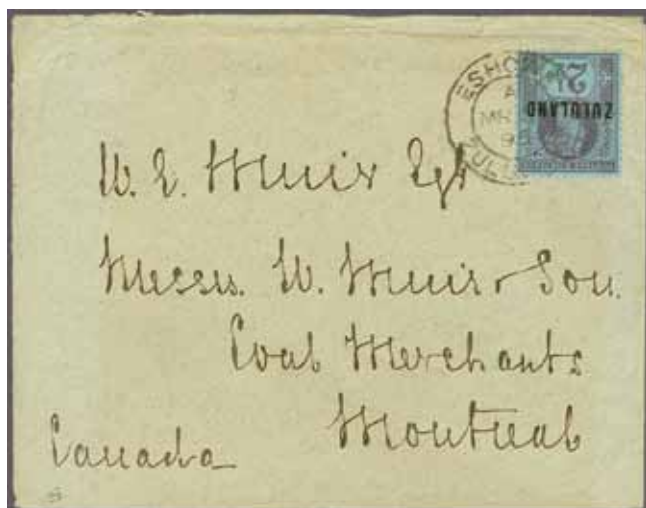 ESHO
A
MR
98
ZUL
2½
ZULULAND
W. E. Muir Esqr
Messrs. W. Muir & Son.
Coal Merchants
Montreal
Canada